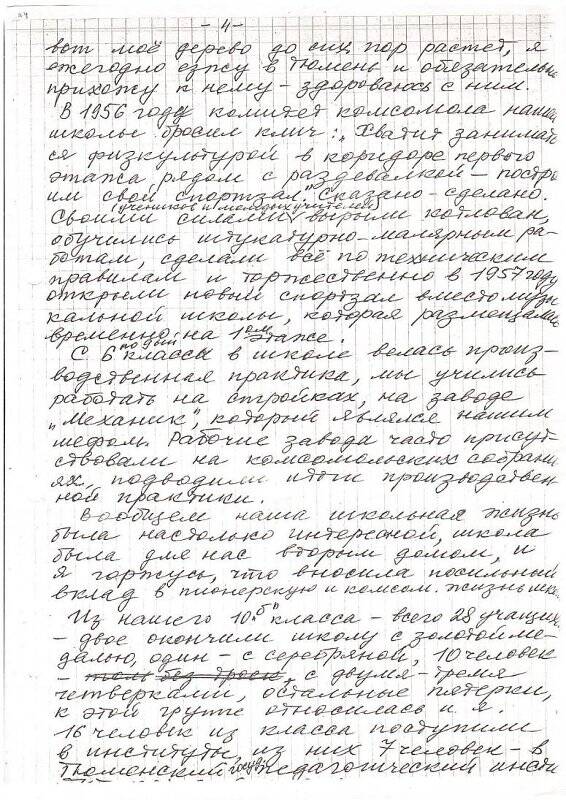 - 4 -
вот моё дерево до сих пор растет, я
ежегодно езжу в Тюмень и обязательно
прихожу к нему - здороваюсь с ним.
В 1956 году комитет комсомола нашей
школы бросил клич: „Хватит занимать
ся физкультурой в коридоре первого
этажа рядом с раздевалкой - постро
им свой спортзал". Сказано - сделано.
(учеников и молодых учителей)
Своими силами вырыли котлован,
обучились штукатурно-малярным ра-
ботам, сделали всё по техническим
правилам и торжественно в 1957 году
открыли новый спортзал вместо музы
кальной школы, которая размещалась
временно на 1ом этаже.
С 6 по 9ый классы в школе велась произ-
водственная практика, мы учились
работать на стройках, на заводе
„Механик", который являлся нашим
шефом. Рабочие завода часто присут-
ствовали на комсомольских собрани
ях, подводили итоги производствен
ной практики.
Вообщем наша школьная жизнь
была настолько интересной, школа
была для нас вторым домом, и
я горжусь, что вносила посильный
вклад в пионерскую и комсом. жизнь
Из нашего 10„б" класса - всего 28 учащихся
- двое окончили школу с золотой ме-
далью, один - с серебряной, 10 человек
- с двумя-тремя
четверками, остальные пятерки,
к этой группе относилась и я.
16 человек из класса поступили
в институты, из них 7 человек - в
Тюменский госуд. педагогический инсти